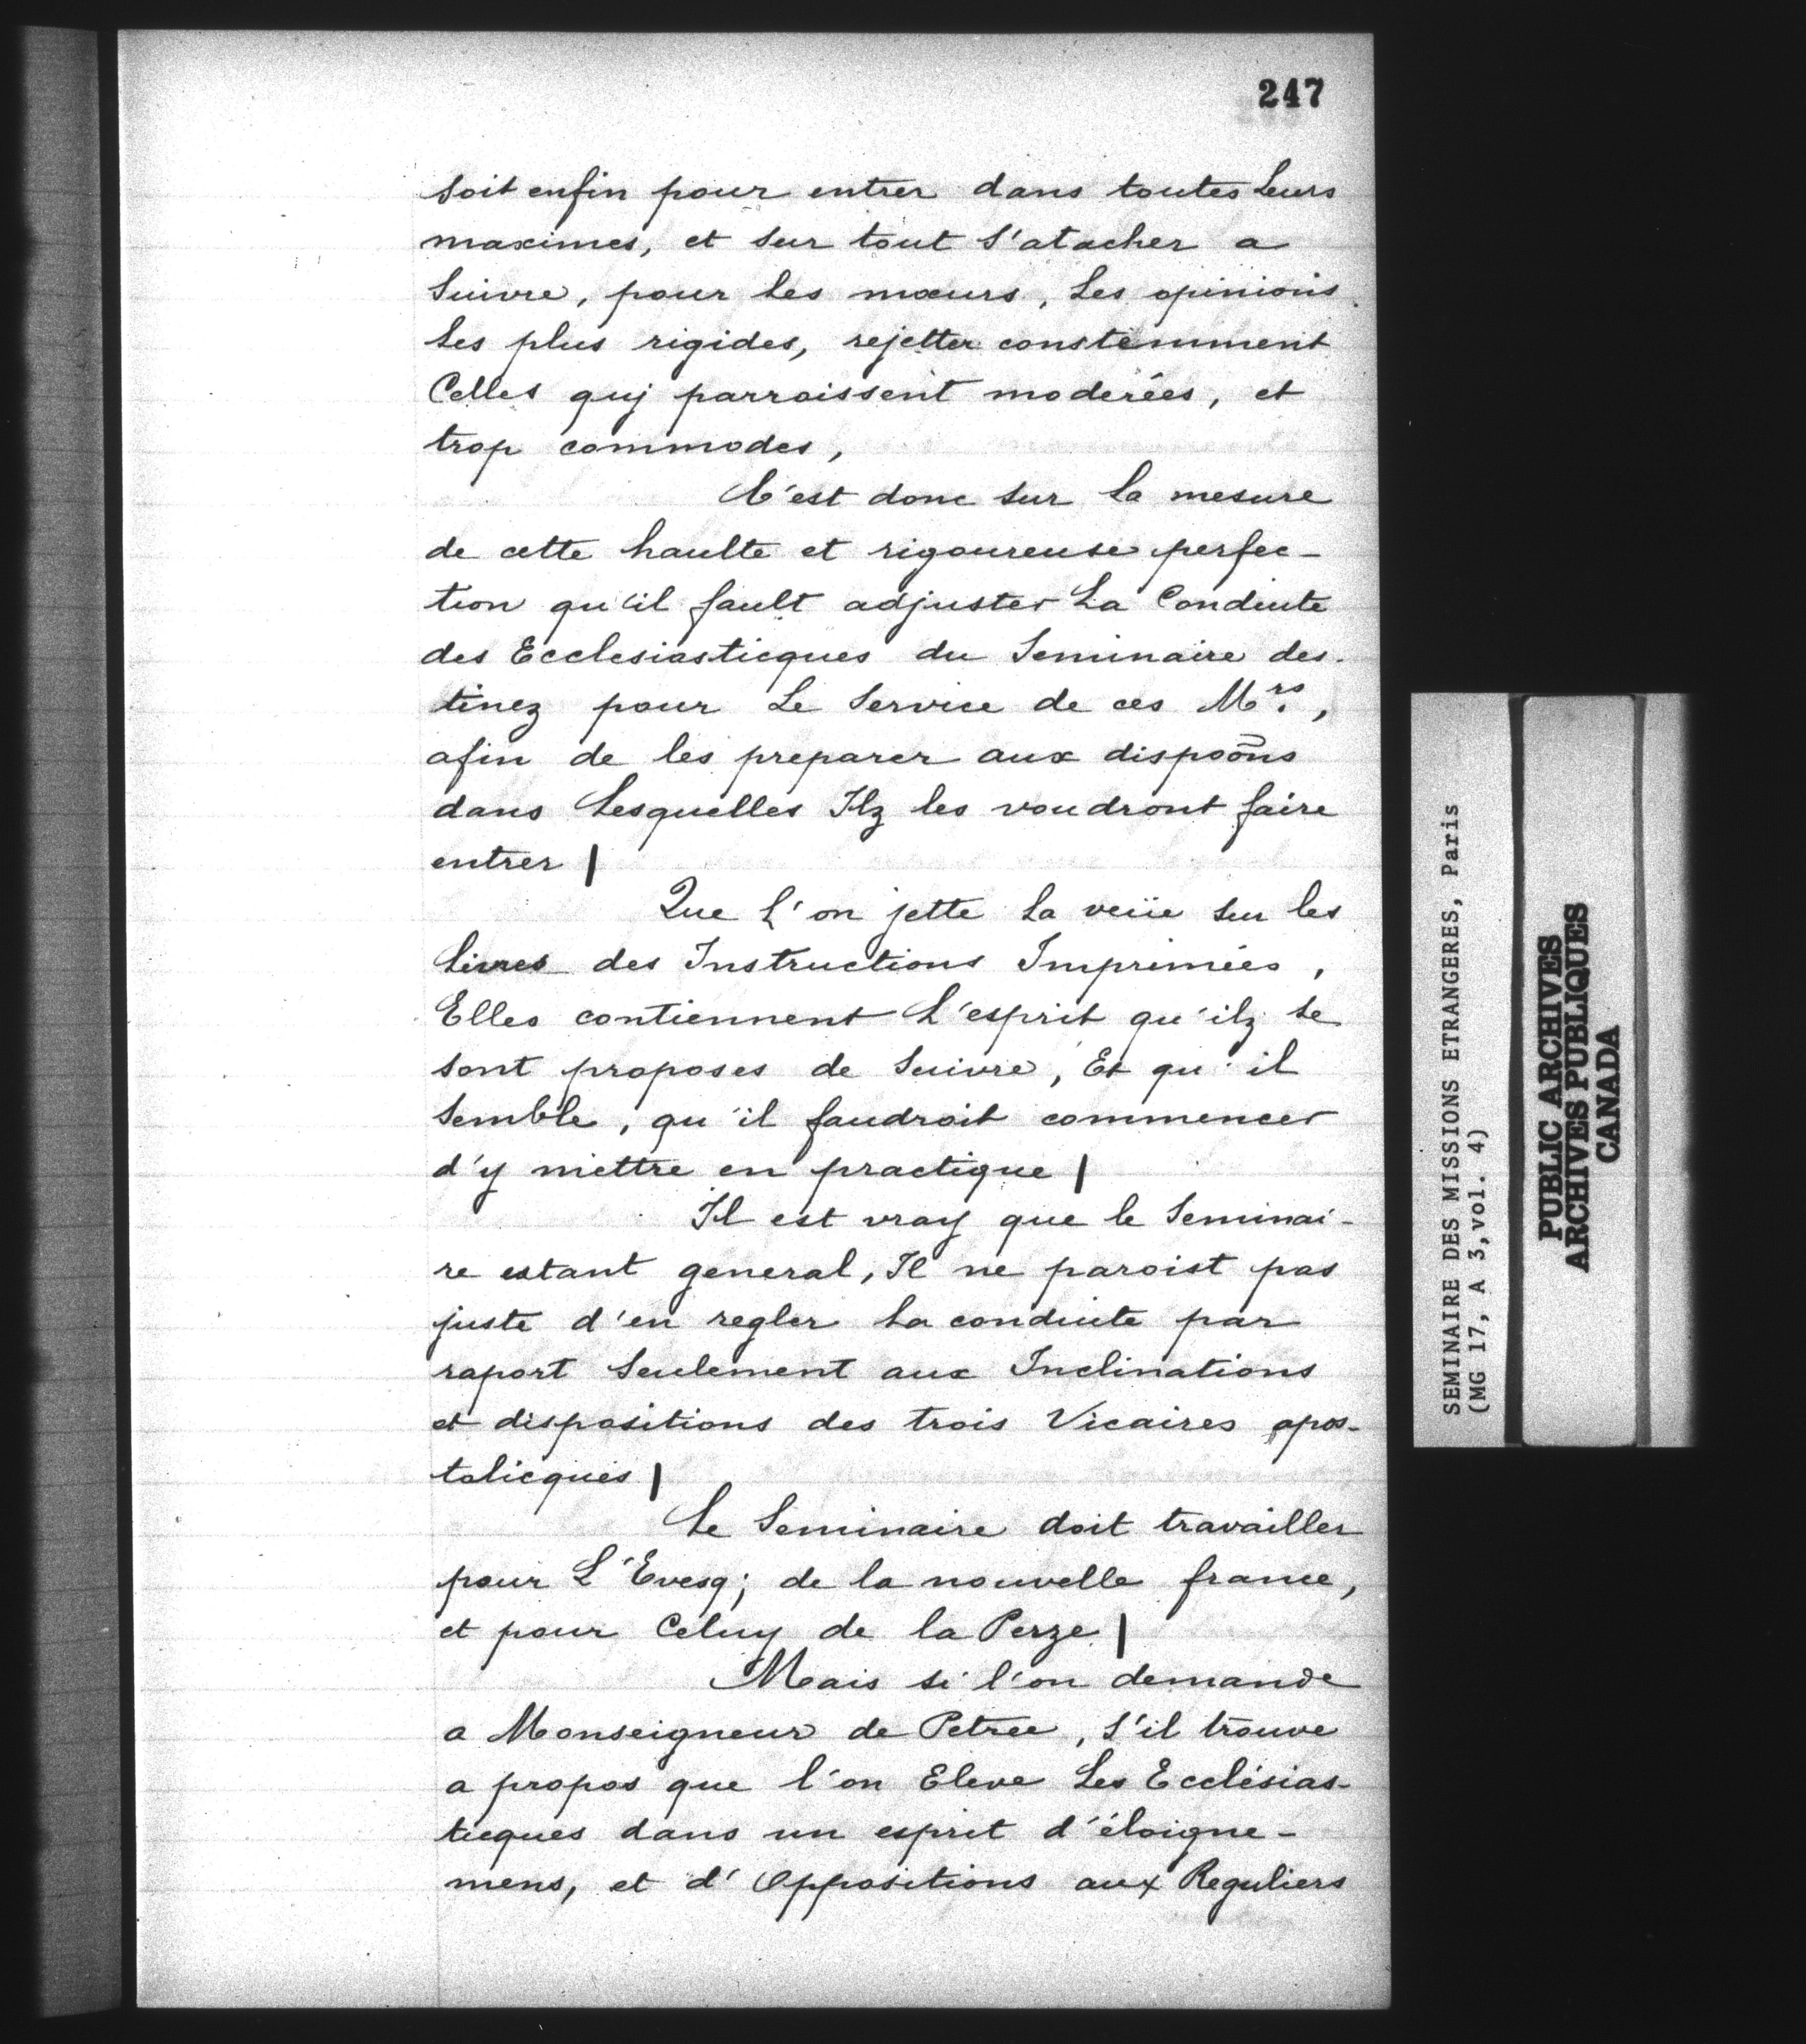 247
soit enfin pour entrer dans toutes Leurs
maximes, et sur tout S'atacher a
Suivre, pour les mœurs, Les opinions
Les plus rigides, rejetter constemment
Celles quj parroissent moderées, et
trop commodes,
C'est donc sur La mesure
de cette haulte et rigoureuse perfec-
tion qu'il fault adjuster La Conduite
des Ecclesiasticques du Seminaire des-
tinez pour Le Service de ces Mrs.,
afin de les preparer aux dispoōns
dans Lesquelles Ilz les voudront faire
entrer |
Que L'on jette La veüe sur les
Livres des Instructions Imprimées,
Elles contiennent L'esprit qu'ilz se
sont proposes de Suivre, Et qu'il
Semble, qu'il faudroit commencer
d'y mettre en practique |
Il est vray que le Seminai-
re estant general, Il ne paroist pas
juste d'en regler La conduite par
raport Seulement aux Inclinations
et dispositions des trois Vicaires apos-
tolicques |
Le Seminaire doit travailler
pour L'Evesq; de la nouvelle france,
et pour Celuy de la Perze |
Mais si l'on demande
a Monseigneur de Petree, S'il trouve
a propos que l'on Eleve Les Ecclésias-
ticques dans un esprit d'éloigne-
mens, et d'Oppositions aux Reguliers
SEMINAIRE DES MISSIONS ETRANGERES, Paris
(MG 17, A 3, vol. 4)
PUBLIC ARCHIVES
ARCHIVES PUBLIQUES
CANADA